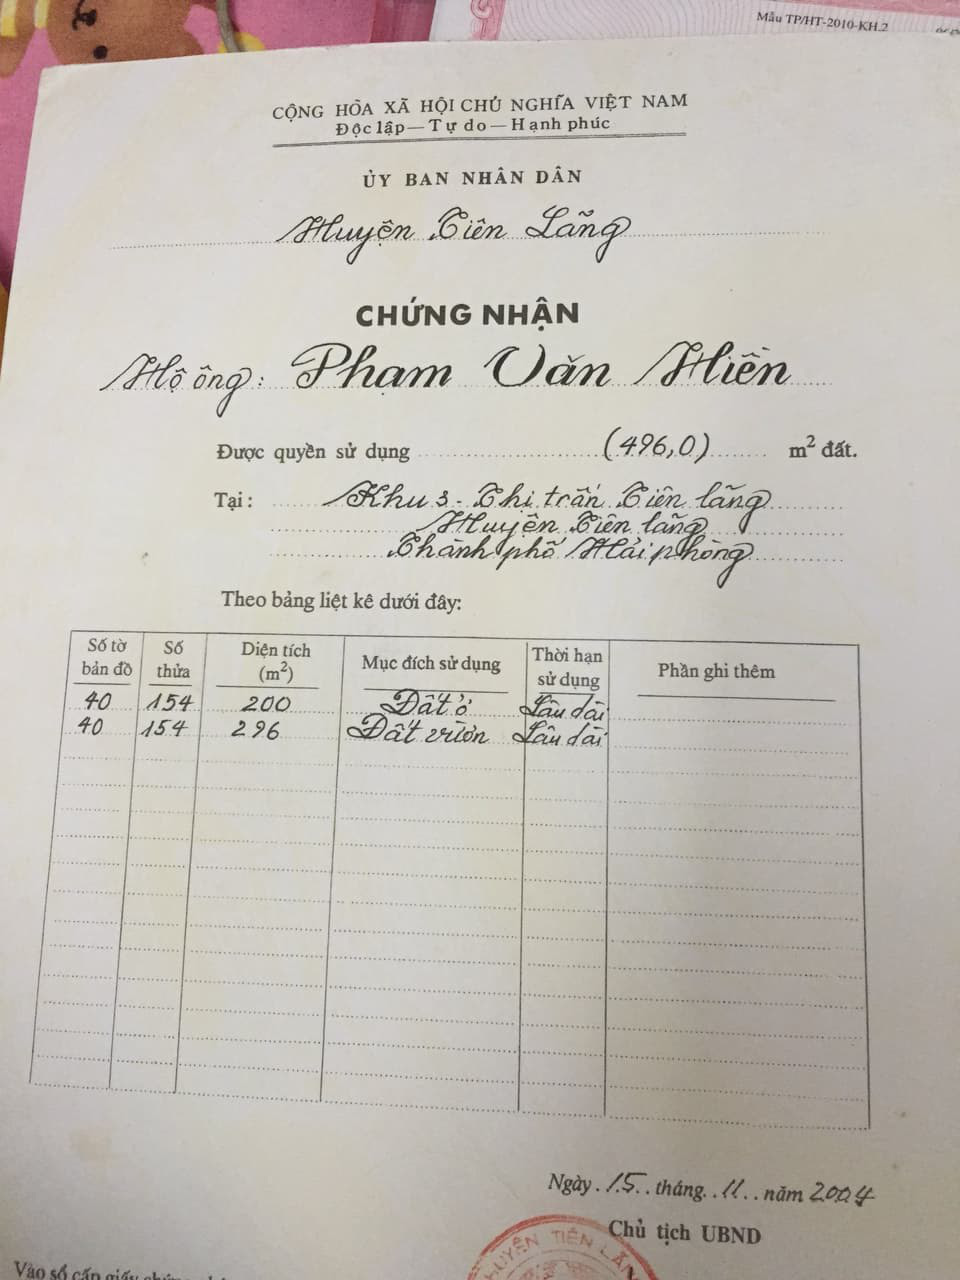 Mẫu TP/HT-2010-KH.2
CỘNG HÒA XÃ HỘI CHỦ NGHĨA VIỆT NAM
Độc lập — Tự do — Hạnh phúc
ỦY BAN NHÂN DÂN
Huyện Tiên Lãng
CHỨNG NHẬN
Hộ ông: Phạm Văn Hiền
Được quyền sử dụng (496,0) m² đất.
Tại: Khu 3 - Thị trấn Tiên lãng
Huyện Tiên lãng
Thành phố Hải phòng
Theo bảng liệt kê dưới đây:
Số tờ bản đồ Số thửa Diện tích (m²) Mục đích sử dụng Thời hạn sử dụng Phần ghi thêm
40 154 200 Đất ở Lâu dài
40 154 296 Đất vườn Lâu dài
Ngày 15 tháng 11 năm 2004
Chủ tịch UBND
HUYỆN TIÊN LÃN
Vào sổ cấp giấy